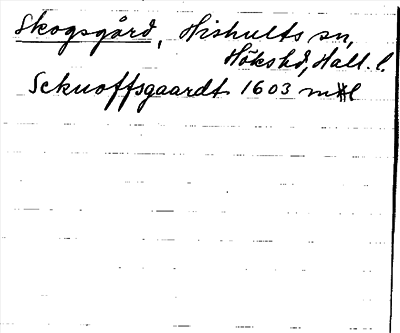 Skogsgård, Hishults sn,
Hökshd, Hall. l.
Sckuoffsgaardt 1603